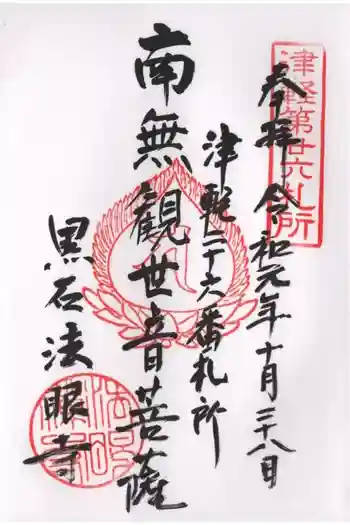 津軽第廿六札所
奉拝 令和元年十月二十八日
津軽二十六番札所
南無觀世音菩薩
黒石法眼寺